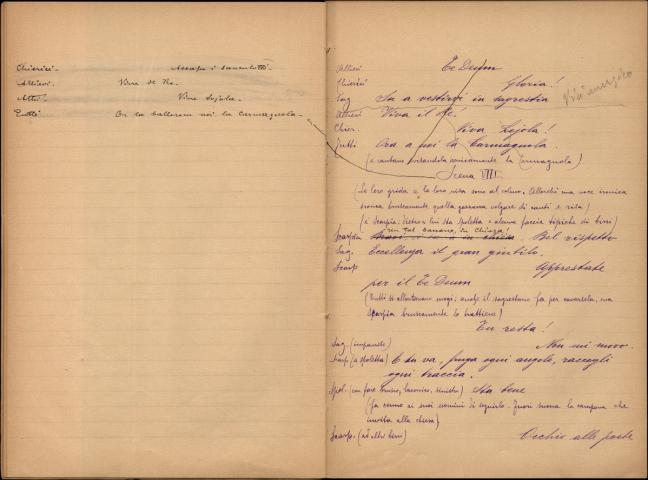 Chierici - Ascafs i sanculotti.
Allievi. Viva il Re.
Altri. Viva Lojola.
Tutti Or la ballerem noi la Carmagnola.
Allievi Te Deum
Chierici Gloria!
Sag Su a vestirvi in sagrestia
Più energico
Allievi Viva il Rè!
Chier. Viva Lojola!
Tutti Ora a noi la Carmagnola.
(e cantano la Carmagnola)
Scena VIII.
(Le loro grida e le loro risa sono al colmo. Allorchè una voce ironica
tronca bruscamente quella gazzarra volgare di canti e risa)
(è Scarpia: dietro a lui sta Spoletta e alcune faccie tipiche di birri)
Un tal baccano, in Chiesa!
Scarpia Bel rispetto
Sag. Eccellenza il gran giubilo.
Scarp Apprestate
per il Te Deum
(Tutti si allontanano mogi; anche il sagrestano fa per cavarsela, ma
Scarpia bruscamente lo trattiene)
Tu resta!
Sag. (impaurito) Non mi movo.
Scarp. (a Spoletta) E tu va, fruga ogni angolo, raccogli
ogni traccia.
Spol. (con fare sinistro) Sta bene
(fa cenno ai suoi uomini di seguirlo. Fuori suona la campana che
invita alla chiesa)
Scarp. (ad altri birri) Occhio alle porte